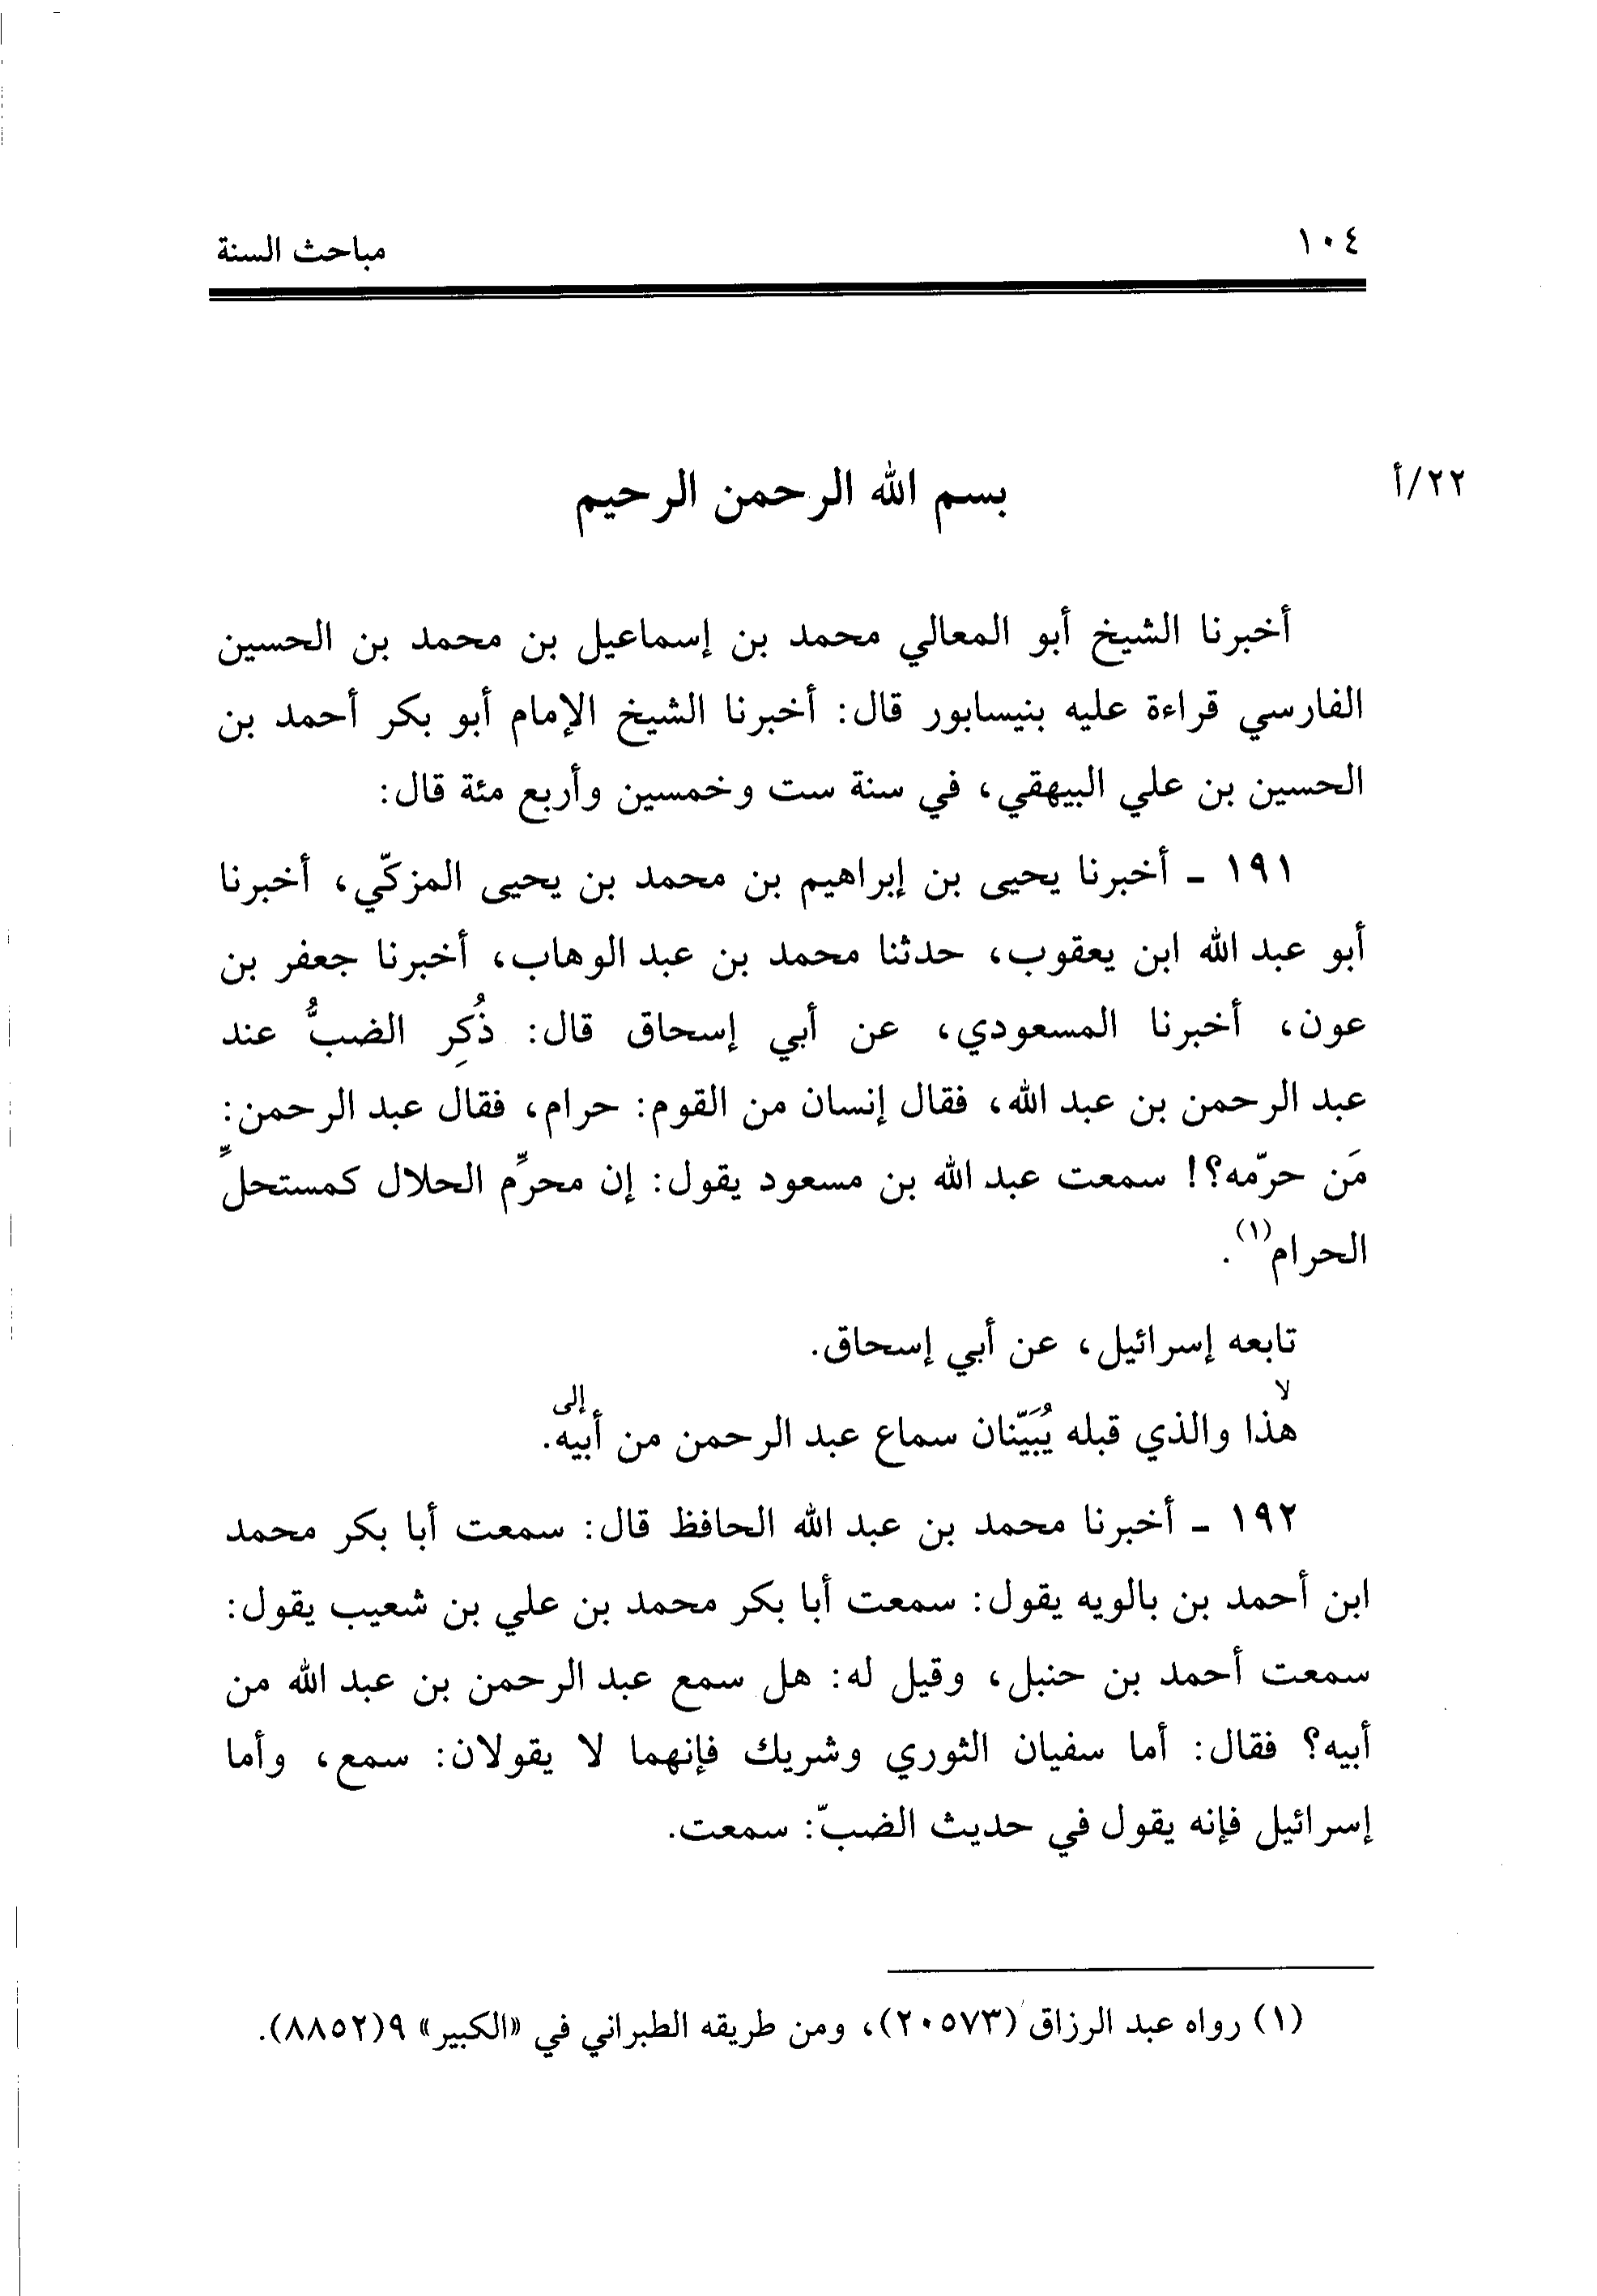 ١٠٤ مباحث السنة
٢٢/أ
بسم الله الرحمن الرحيم
أخبرنا الشيخ أبو المعالي محمد بن إسماعيل بن محمد بن الحسين
الفارسي قراءة عليه بنيسابور قال: أخبرنا الشيخ الإمام أبو بكر أحمد بن
الحسين بن علي البيهقي، في سنة ست وخمسين وأربع مئة قال:
١٩١ - أخبرنا يحيى بن إبراهيم بن محمد بن يحيى المزكّي، أخبرنا
أبو عبد الله ابن يعقوب، حدثنا محمد بن عبد الوهاب، أخبرنا جعفر بن
عون، أخبرنا المسعودي، عن أبي إسحاق قال: ذُكِر الضبُّ عند
عبد الرحمن بن عبد الله، فقال إنسان من القوم: حرام، فقال عبد الرحمن:
مَن حرّمه؟! سمعت عبد الله بن مسعود يقول: إن محرِّم الحلال كمستحلِّ
الحرام(١).
تابعه إسرائيل، عن أبي إسحاق.
لا إلى
هذا والذي قبله يُبَيّنان سماع عبد الرحمن من أبيه.
١٩٢ - أخبرنا محمد بن عبد الله الحافظ قال: سمعت أبا بكر محمد
ابن أحمد بن بالويه يقول: سمعت أبا بكر محمد بن علي بن شعيب يقول:
سمعت أحمد بن حنبل، وقيل له: هل سمع عبد الرحمن بن عبد الله من
أبيه؟ فقال: أما سفيان الثوري وشريك فإنهما لا يقولان: سمع، وأما
إسرائيل فإنه يقول في حديث الضبّ: سمعت.
(١) رواه عبد الرزاق (٢٠٥٧٣)، ومن طريقه الطبراني في «الكبير» ٩(٨٨٥٢).